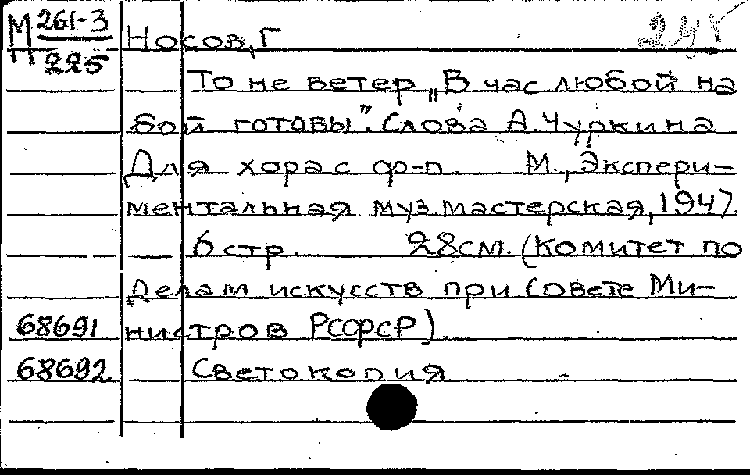 М 261-3 Носов, Г 245
П 225
То не ветер „В час любой на
бой готовы". Слова А. Чуркина
Для хора с ф-п. М., Экспери-
ментальная муз. мастерская, 1947.
6 стр. 28см. (Комитет по
делам искусств при Совете Ми-
68691 нистров РСФСР)
68692 Светокопия